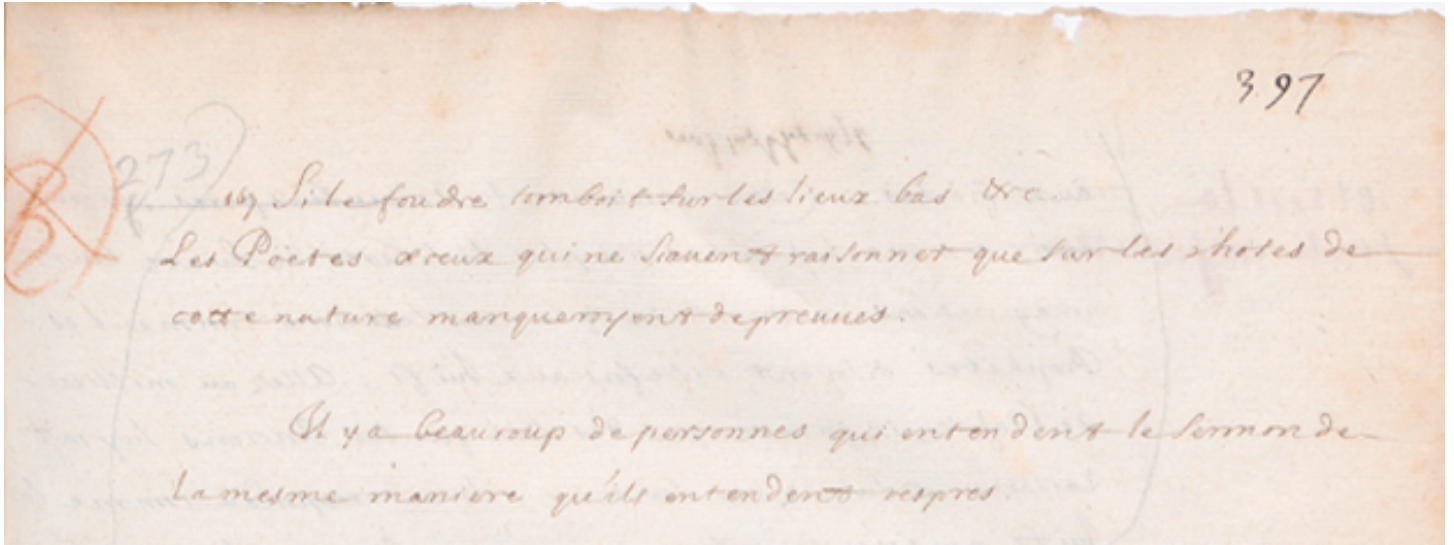 397
273
Si le foudre tomboit sur les lieux bas &c
Les Poëtes & ceux qui ne sçavent raisonner que sur les choses de
cette nature manqueroyent de preuves.
Il y a beaucoup de personnes qui entendent le sermon de
la mesme maniere qu'ils entendent vespres.